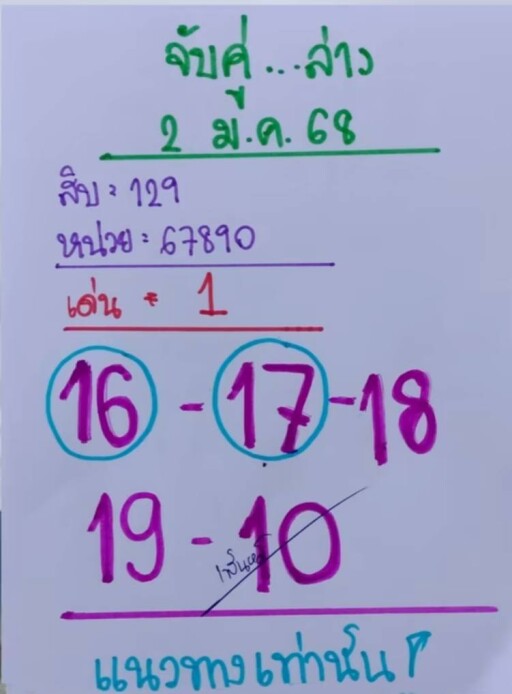 จับคู่...ล่าง
2 ม.ค. 68
สิบ = 129
หน่วย = 67890
เด่น = 1
16 - 17 - 18
19 - 10
แนวทางเท่านั้น